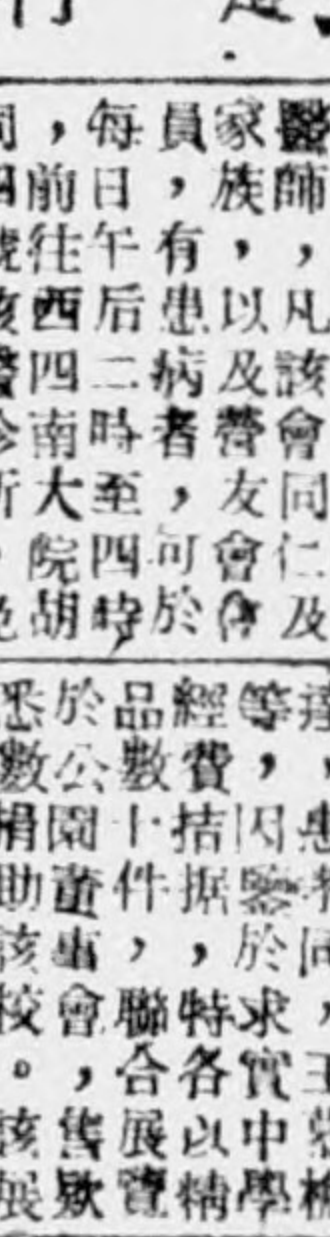 醫師，凡該會同仁及
家族，以及營友會會
員，有患病者，可於
每日午后二時至四時
，前往西四南大院胡
等，因鑒於求實中學
經費拮据，特各以精
品數十件，聯合展覽
於公園董事會，售欵
悉數捐助該校。該展